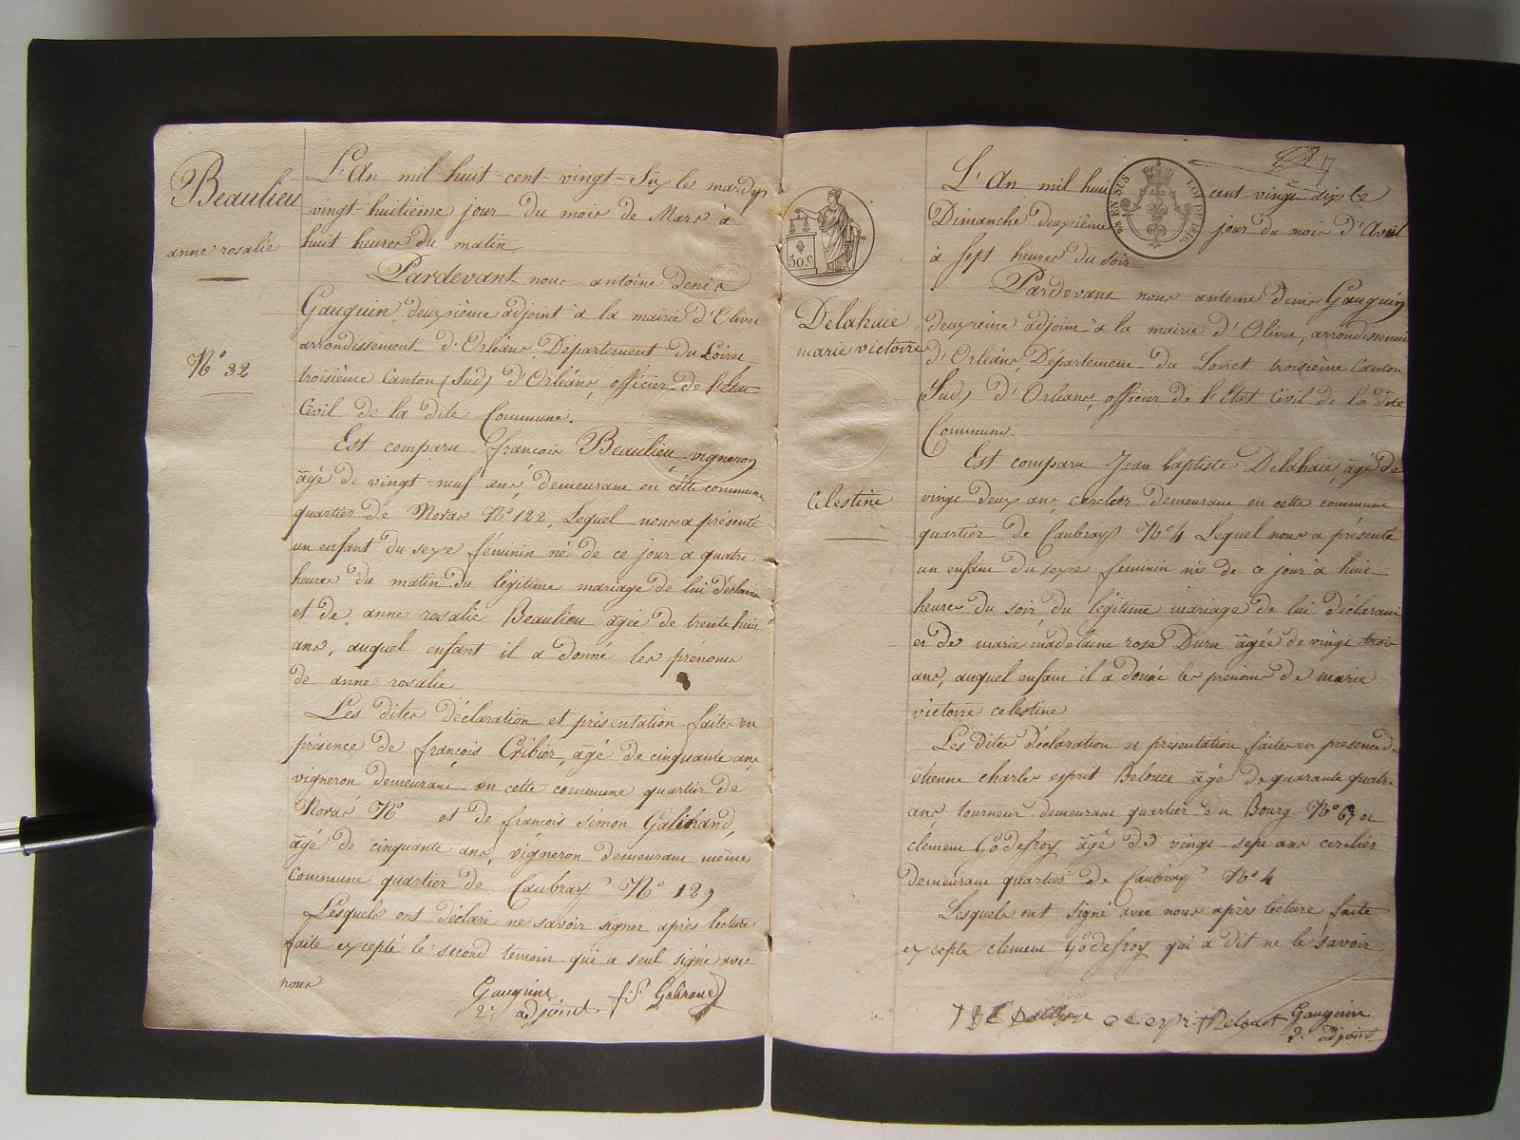 Beaulieu
anne rosalie
N° 32
L'An mil huit-cent-vingt-Six les mardy
vingt-huitième jour du mois de Mars à
huit heures du matin
Pardevant nous antoine Denis
Gauguin deuxième adjoint à la mairie d'Olivet
arrondissement d'Orléans, Département du Loiret
troisième Canton (Sud) d'Orléans, officier de l'Etat
Civil de la dite Commune.
Est comparu françois Beaulieu vigneron
âgé de vingt-neuf ans, demeurant en cette commune
quartier de Noras N° 122, Lequel nous a présenté
un enfant du sexe féminin né de ce jour a quatre
heures du matin du légitime mariage de lui déclarant
et de anne rosalie Beaulieu agée de trente huit
ans, auquel enfant il a donné les prénoms
de anne rosalie
Les dites déclaration et présentation faites en
présence de françois Cribier, agé de cinquante ans
vigneron demeurant en cette commune quartier de
Noras N° et de françois Simon Galirand,
âgé de cinquante ans, vigneron demeurant même
Commune quartier de Caubray N° 129
Lesquels ont déclaré ne savoir signer après lecture
faite excepté le second temoin qui a seul signé avec
nous
Gauguin
2e adjoint
f S Galirand
50 c
Delahaie
marie victoire
Celestine
L'An mil huit cent vingt six le
Dimanche deuxième jour du mois d'Avril
à Sept heures du soir
Pardevant nous antoine Denis Gauguin
deuxième adjoint à la mairie d'Olivet, arrondissement
d'Orléans, Département du Loiret troisième Canton
Sud, d'Orléans, officier de l'Etat Civil de la dite
Commune.
Est comparu Jean baptiste Delahaie, âgé de
vingt deux ans, cerclier demeurant en cette commune
quartier de Caubray N° 4 Lequel nous a présenté
un enfant du sexe feminin né de ce jour a huit
heures du soir du légitime mariage de lui déclarant
et de marie madelaine rose Duru âgée de vingt trois
ans, auquel enfant il a donné les prenoms de marie
victoire celestine
Les dites déclaration et présentation faites en presence de
étienne charles esprit Belouet âgé de quarante quatre
ans tourneur demeurant quartier du Bourg N° 63 et
clement Godefroy âgé de vingt sept ans cerclier
demeurant quartier de Caubray N° 4
Lesquels ont signé avec nous après lecture faite
excepté clement Godefroy qui a dit ne le savoir
esprit Belouet
Gauguin
2e adjoint